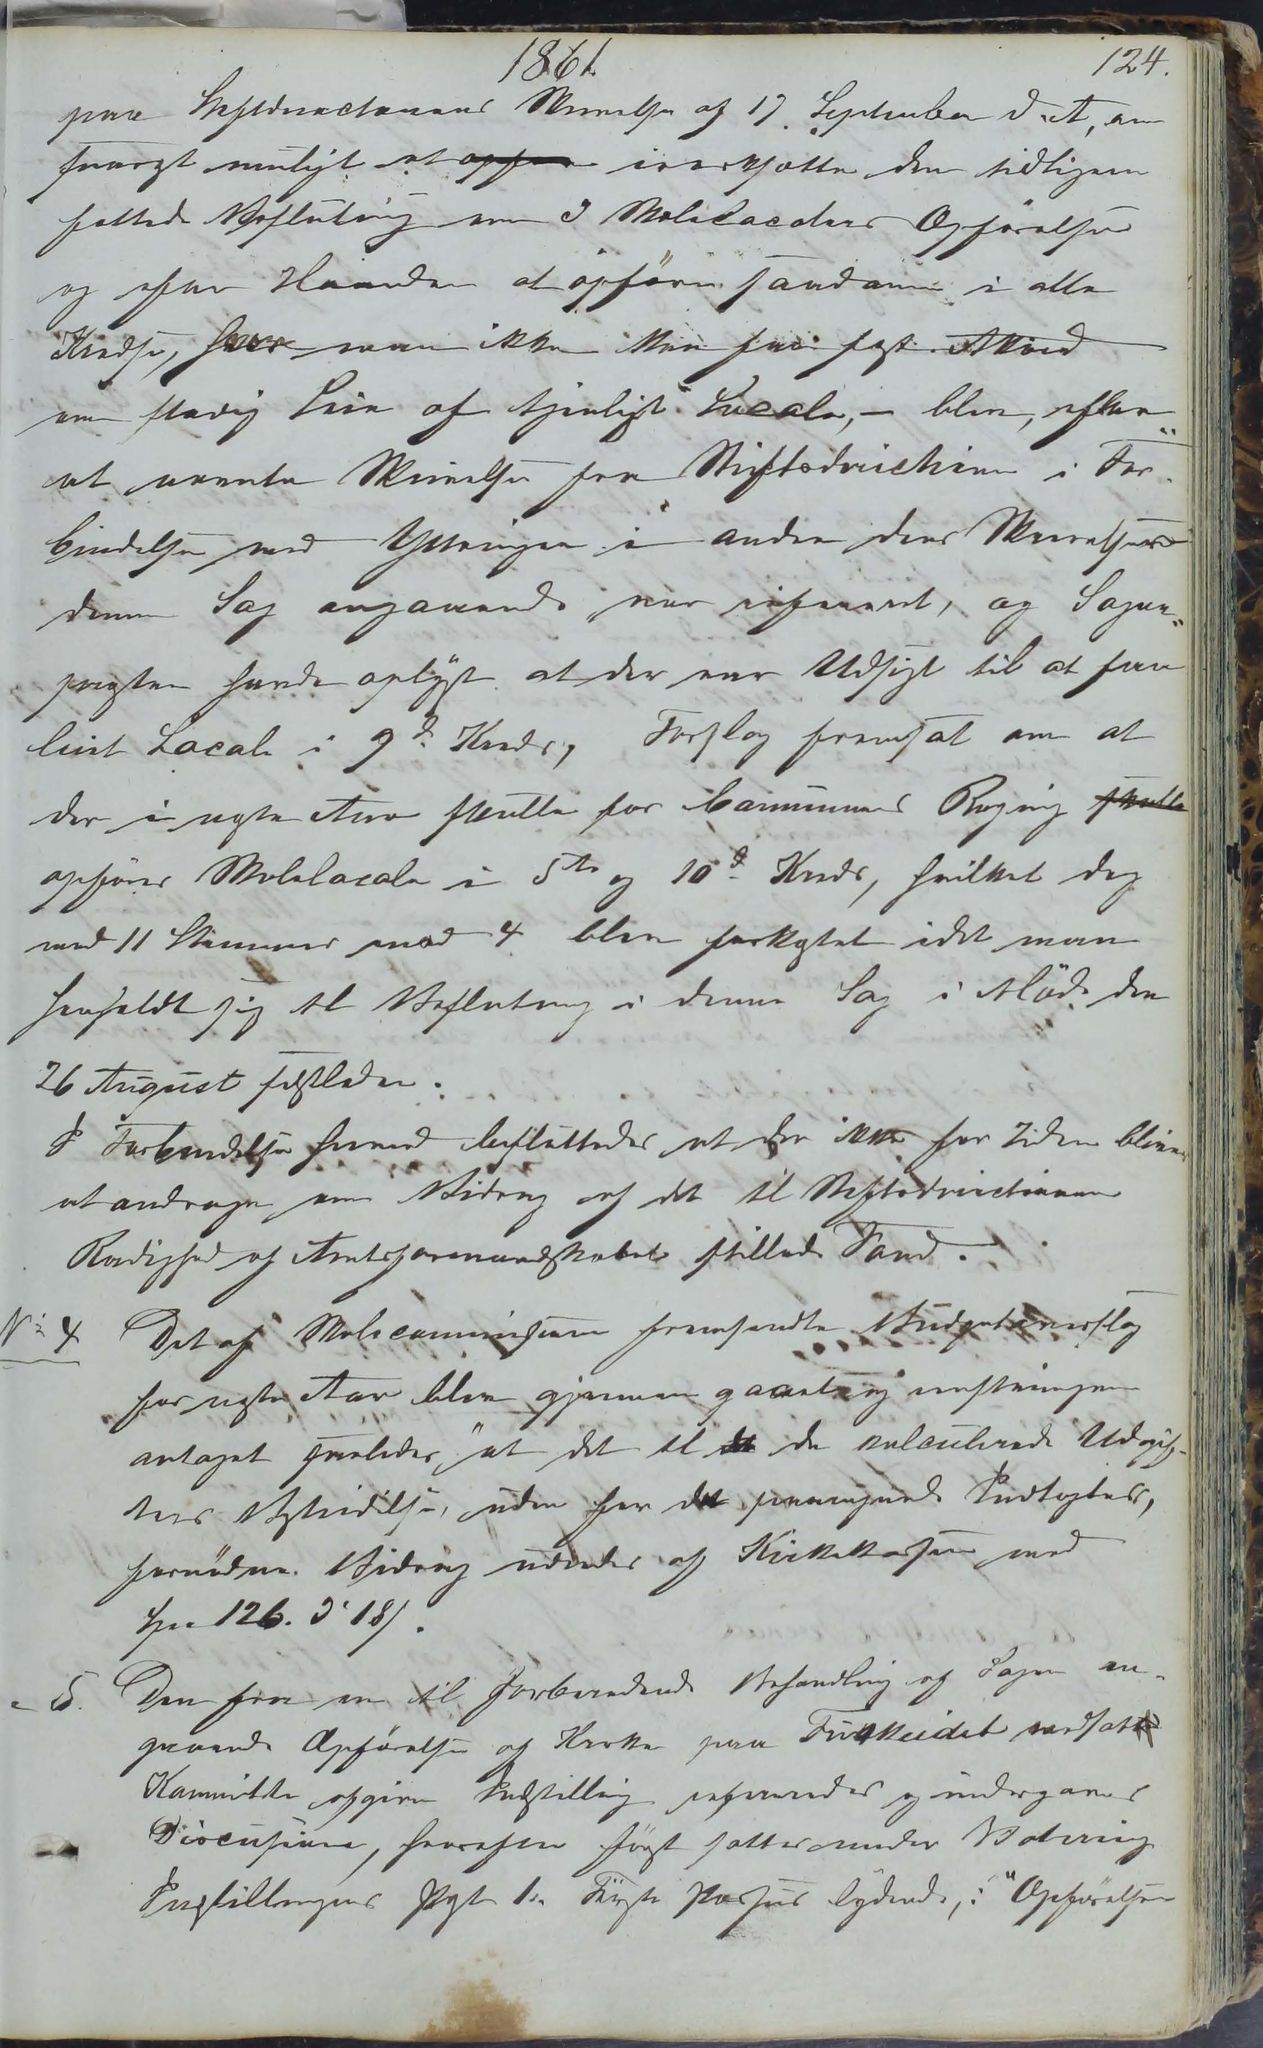 1861.
124.
paa Stiftsdirectionens Skrivelse af 17. September d. A., om
snarest muligt at opføre iværksætte den tidligere
fattede Beslutning om 3 Skolelocalers Opførelse
og efter Haanden at opføre saadanne i alle
Kredse, hvor man ikke kan faae fast Akkord
om stadig Leie af tjenligt Locale, – blev, efter
at nævnte Skrivelse fra Stiftsdirectionen i For-
bindelse med Yttringer i anden dens Skrivelse
denne Sag angaaende var refereret, og Sogne-
præsten havde oplyst at der var Udsigt til at faae
leiet Locale i 9d. Kreds, Forslag fremsat om at
der i næste Aar skulle for Communens Regning skulle
opføres Skolelocale i 5te og 10d. Kreds, hvilket dog
med 11 Stemmer mod 4 blev forkastet idet man
henholdt sig til Beslutning i denne Sag i Møde den
26 August sistleden.
I Forbindelse hermed besluttedes at der ikke for Tiden bliver
at andrage om Bidrag af det til Stiftsdirectionens
Raadighed af Amtsformandskabet stillede Fond.
No 4 Det af Skolecommissionen fremsendte Budgetoverslag
for næste Aar blev gjennemgaaet og enstemmigen
antaget saaledes, at det til de calculerede Udgif-
ters Bestridelse, uden for det paaregnede Indtægter,
fornødne Bidrag udredes af Kirkekassen med
Spd 126. 3. 18 s.
- 5. Den fra en til forberedende Behandling af Sagen an-
gaaende Opførelse af Kirke paa nedsatte
Kommitte afgivne Indstilling refereredes og undergaves
Discusion, hvorefter først sattes under Votering
Indstillingens Post 1. Første Passus lydende: "Opførelsen